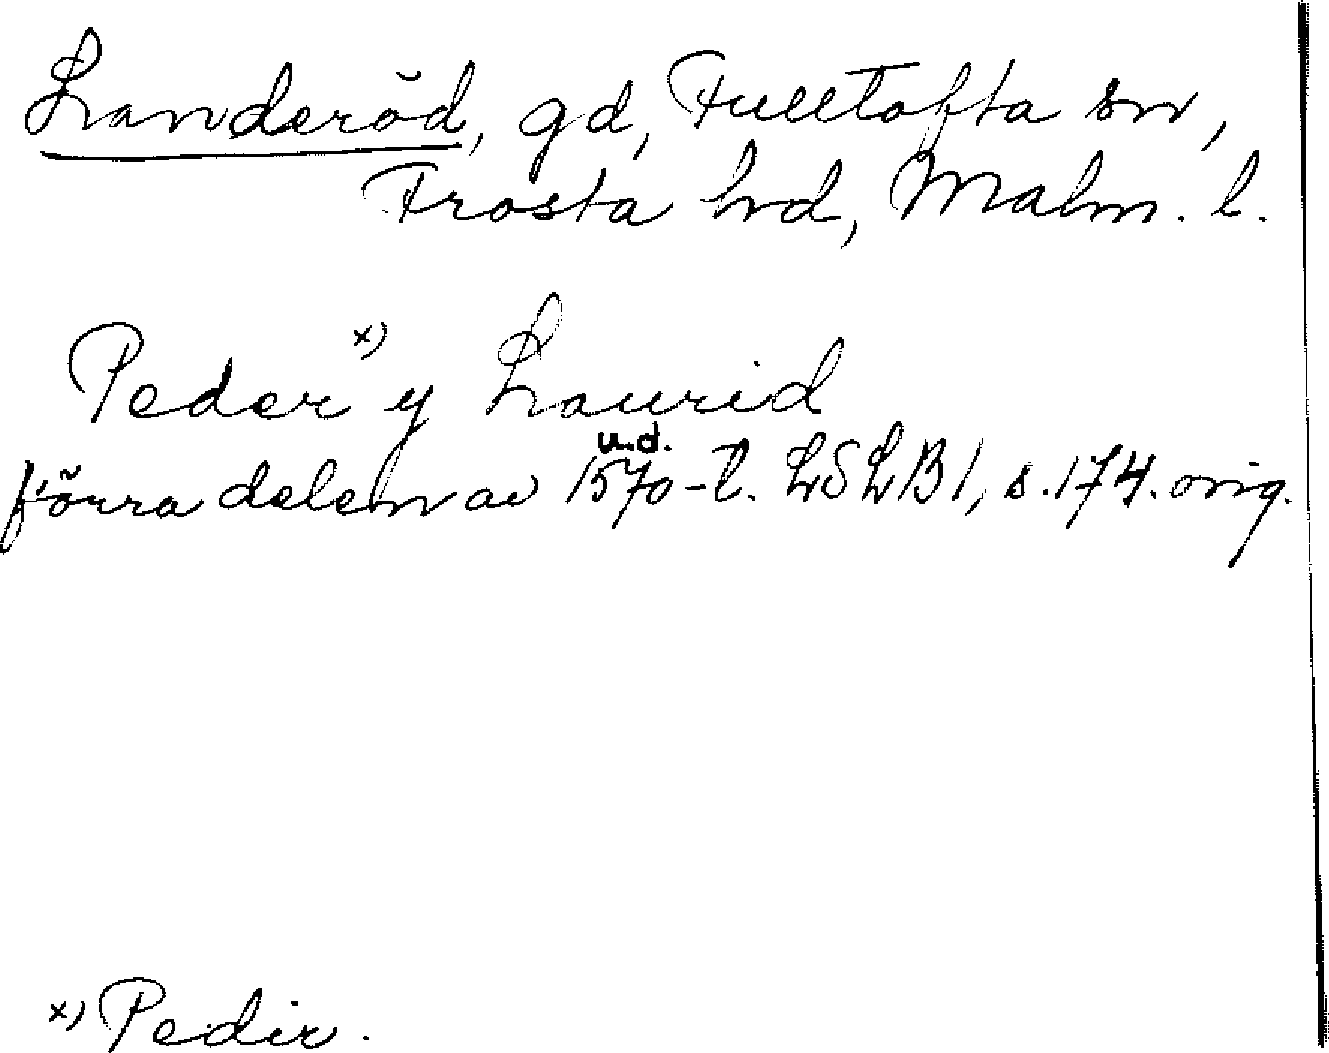 Landeröd, gd, Fulltofta sn,
Frosta hd, Malm. l.
Peder x) y Laurid
u.d.
förra delen av 1570-t. LSLB1, s.174. orig.
x) Pedir.